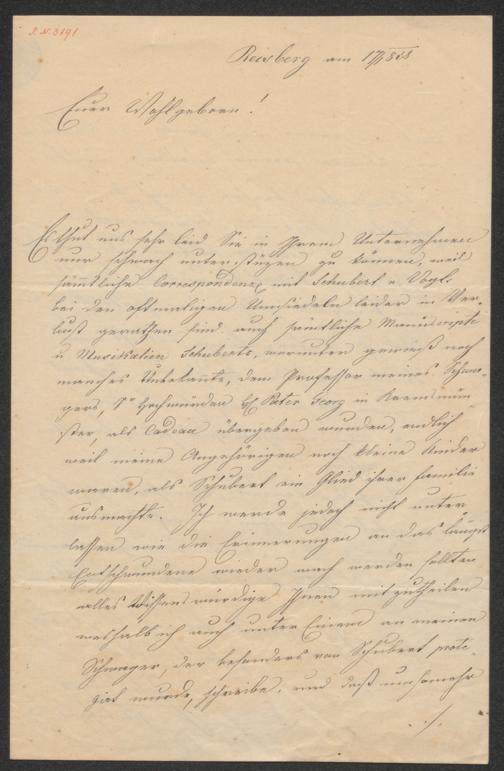 I.N. 3191
Reisberg am 17/1858
Euer Wohlgeboren!
Es thut uns sehr leid Sie in Ihrem Unternehmen
nur schwach unterstüzen zu können, weil
sämtliche Correspondenz mit Schubert u. Vogl
bei den oftmaligen Umsiedeln leider in Ver-
lust gerathen sind, auch sämtliche Manuscripte
u Musikalien Schuberts, worunter gewiß noch
manches Unbekannte, dem Professor meines Schwa-
gers, Sr Hochwürden Pater Georg in Kremsmün
ster, als Cadeau übergeben wurden, endlich
weil meine Angehörigen noch kleine Kinder
waren, als Schubert ein Glied ihrer Familie
ausmachte. Ich werde jedoch nicht unter
lassen wie die Erinnerungen an das längst
Entschwundene wieder wach werden sollten
alles Wissenswürdige Ihnen mitzutheilen
weshalb ich auch unter Einem an meinen
Schwager, der besonders von Schubert prote-
girt wurde, schreibe, und daß umsomehr
./.